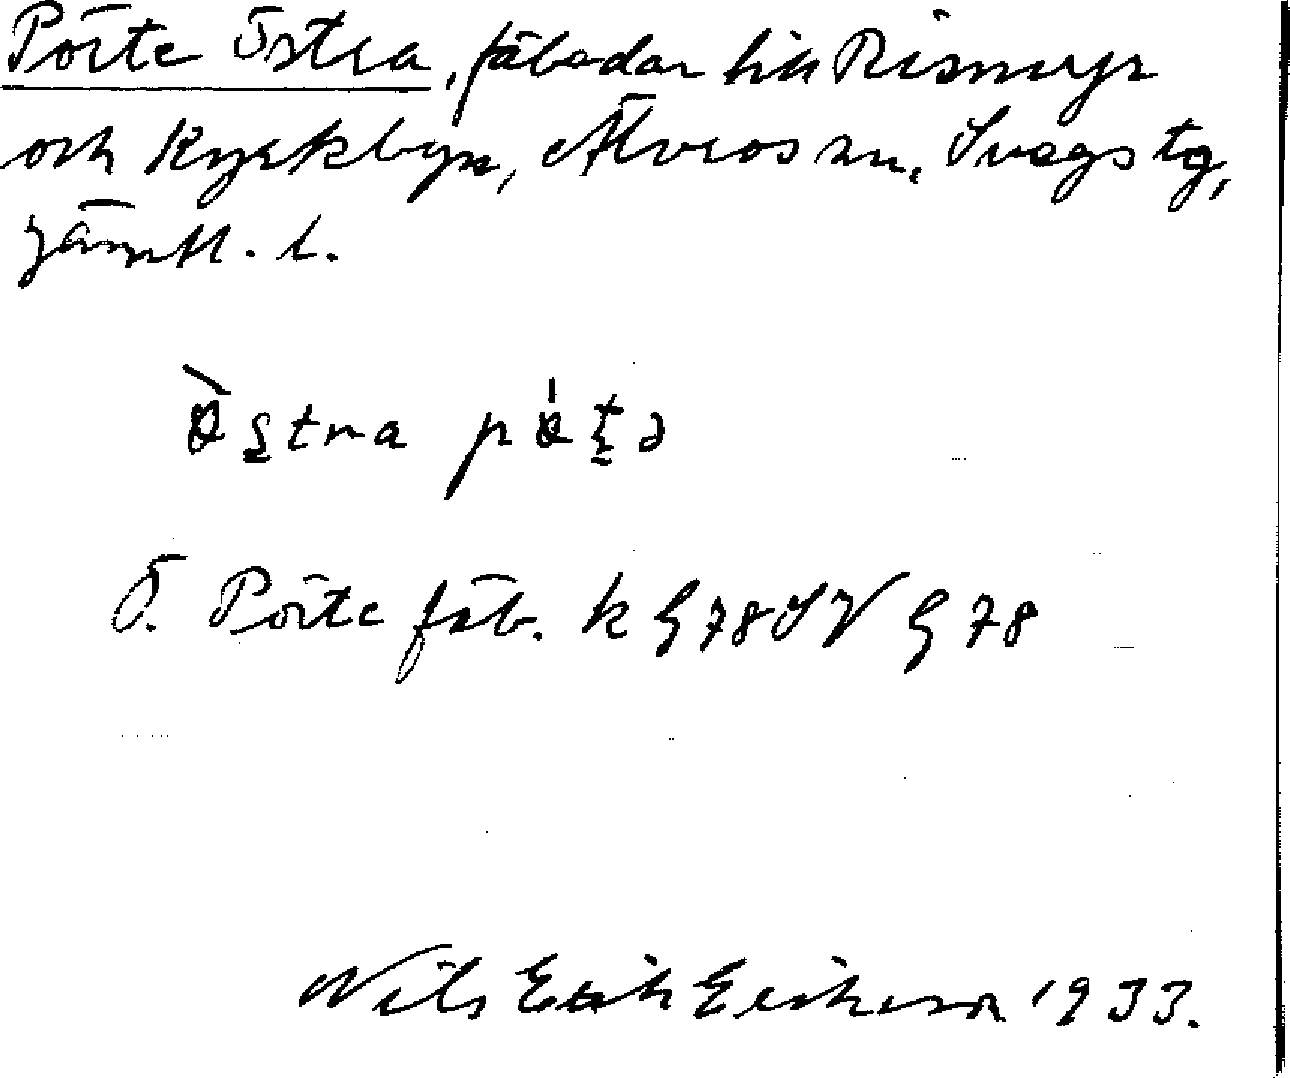 Pöite Östra, fäbodar till Rismyr
och Kyrkbyn, Älvros sn, Svegs tg,
Jämtl. l.
Östra
Ö. Pöite fäb. k G 78 SV G 78
Nils Erik Erikson 1933.